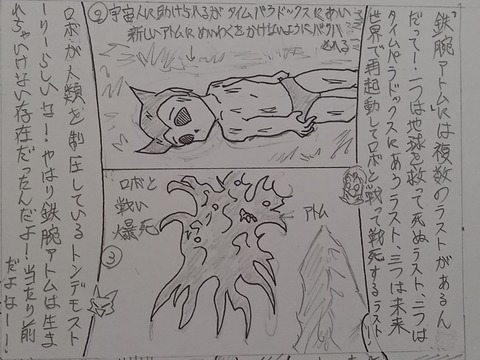 "鉄腕アトム"には複数のラストがあるん
だって！一つは地球を救って死ぬラスト、二つは
タイムパラドックスにあうラスト、三つは未来
世界で再起動してロボと戦って戦死するラスト！
②宇宙人に助けられるがタイムパラドックスにあい
新しいアトムにめいわくをかけないようにバクハ
される
アトム
ロボと
戦い
爆死
③
ロボが人類を制圧しているトンデモスト
ーリーらしいな！やはり鉄腕アトムは生ま
れちゃいけない存在だったんだよー！当たり前
だよなー！！